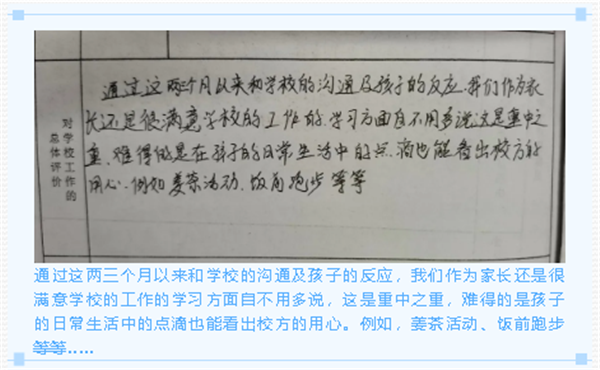 对学校工作的
总体评价
通过这两三个月以来和学校的沟通及孩子的反应.我们作为家
长还是很满意学校的工作的.学习方面自不用多说,这是重中之
重,难得的是在孩子的日常生活中的点滴也能看出校方的
用心.例如姜茶活动、饭前跑步等等
通过这两三个月以来和学校的沟通及孩子的反应，我们作为家长还是很
满意学校的工作的学习方面自不用多说，这是重中之重，难得的是孩子
的日常生活中的点滴也能看出校方的用心。例如，姜茶活动、饭前跑步
等等.....